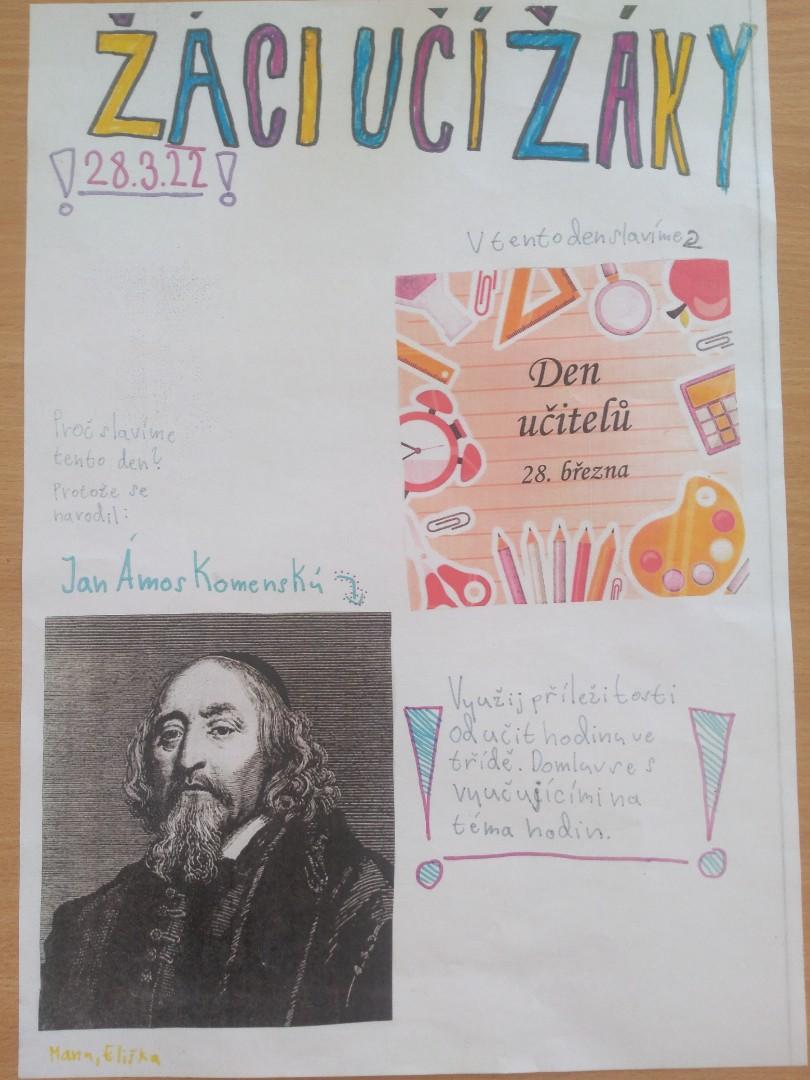 ŽÁCI UČÍ ŽÁKY
!28.3.22!
V tento den slavíme
Den
učitelů
28. března
Proč slavíme
tento den?
Protože se
narodil:
Jan Ámos Komenský
Využij příležitosti
odučit hodinu ve
třídě. Domluv se s
vyučujícími na
téma hodin.
Hana, Eliška